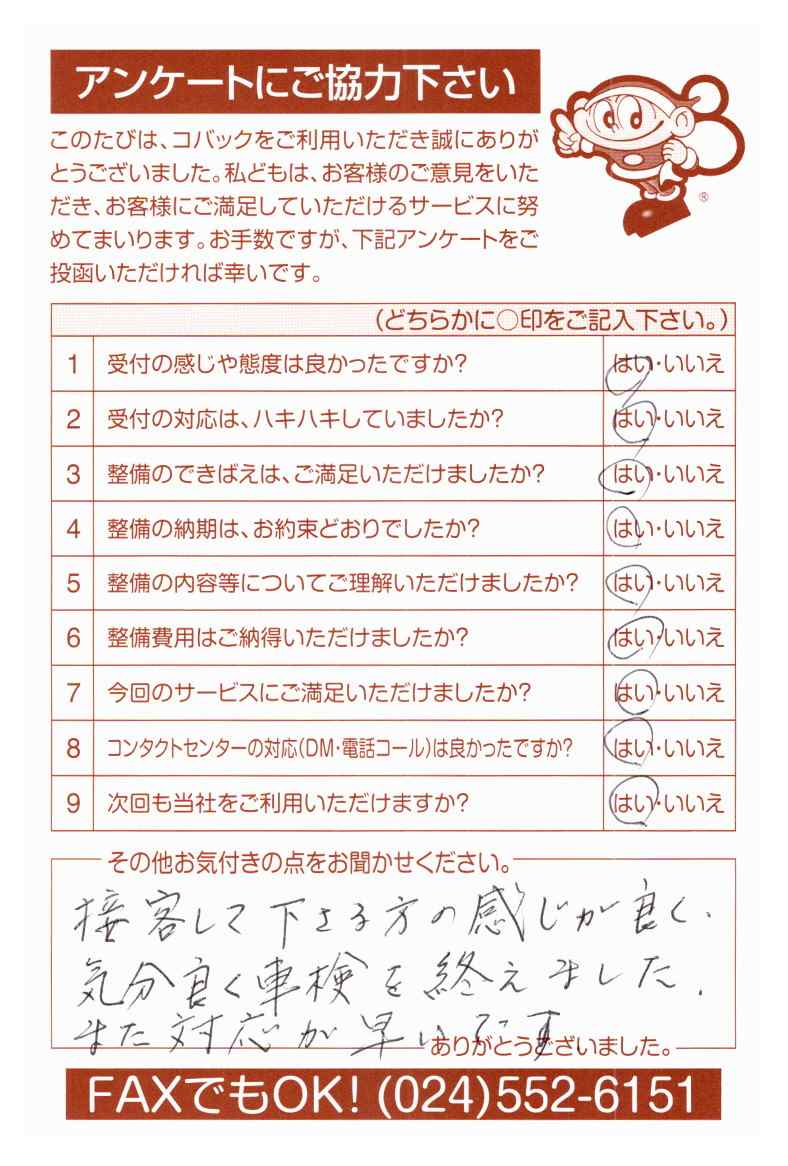 アンケートにご協力下さい
このたびは、コバックをご利用いただき誠にありが
とうございました。私どもは、お客様のご意見をいた
だき、お客様にご満足していただけるサービスに努
めてまいります。お手数ですが、下記アンケートをご
投函いただければ幸いです。
®
(どちらかに○印をご記入下さい。)
1 受付の感じや態度は良かったですか? はい・いいえ
2 受付の対応は、ハキハキしていましたか? はい・いいえ
3 整備のできばえは、ご満足いただけましたか? はい・いいえ
4 整備の納期は、お約束どおりでしたか? はい・いいえ
5 整備の内容等についてご理解いただけましたか? はい・いいえ
6 整備費用はご納得いただけましたか? はい・いいえ
7 今回のサービスにご満足いただけましたか? はい・いいえ
8 コンタクトセンターの対応(DM・電話コール)は良かったですか? はい・いいえ
9 次回も当社をご利用いただけますか? はい・いいえ
その他お気付きの点をお聞かせください。
接客して下さる方の感じが良く、
気分良く車検を終えました。
また対応が早いです
ありがとうございました。
FAXでもOK! (024)552-6151